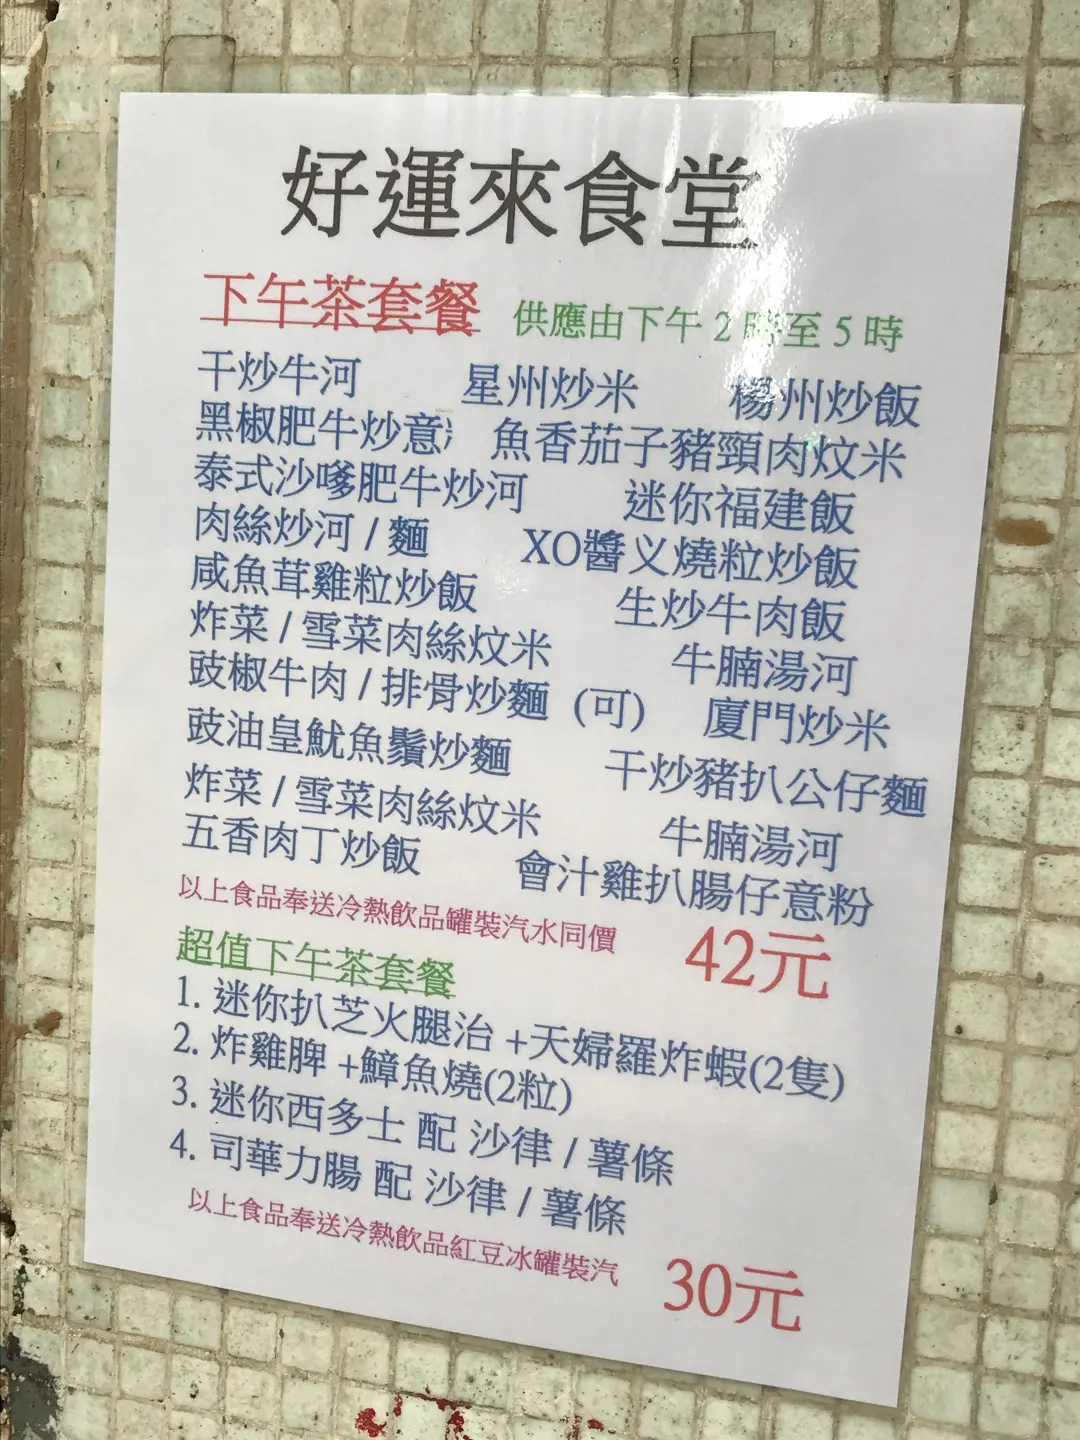 好運來食堂
下午茶套餐 供應由下午 2 時至 5 時
干炒牛河 星州炒米 楊州炒飯
黑椒肥牛炒意 魚香茄子豬頸肉炆米
泰式沙嗲肥牛炒河 迷你福建飯
肉絲炒河 / 麵 XO醬义燒粒炒飯
咸魚茸雞粒炒飯 生炒牛肉飯
炸菜 / 雪菜肉絲炆米 牛腩湯河
豉椒牛肉 / 排骨炒麵 (可) 廈門炒米
豉油皇魷魚鬚炒麵 干炒豬扒公仔麵
炸菜 / 雪菜肉絲炆米 牛腩湯河
五香肉丁炒飯 會汁雞扒腸仔意粉
以上食品奉送冷熱飲品罐裝汽水同價 42元
超值下午茶套餐
1. 迷你扒芝火腿治 +天婦羅炸蝦(2隻)
2. 炸雞脾 +鱆魚燒(2粒)
3. 迷你西多士 配 沙律 / 薯條
4. 司華力腸 配 沙律 / 薯條
以上食品奉送冷熱飲品紅豆冰罐裝汽 30元